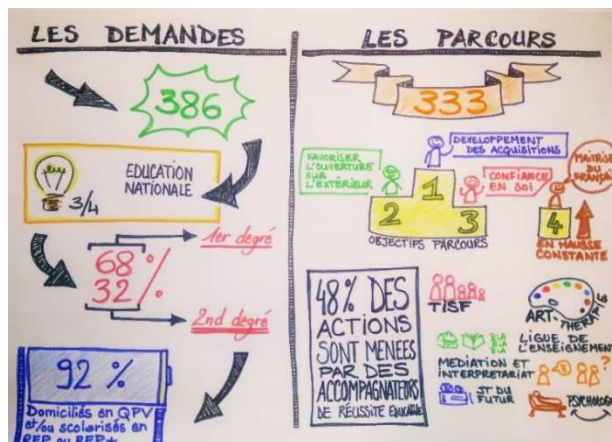 LES DEMANDES
386
EDUCATION
NATIONALE
3/4
1er degré
68 %
32
2nd degré
92 %
Domiciliés en QPV
et/ou scolarisés en
REP ou REP+
LES PARCOURS
333
FAVORISER
L'OUVERTURE
SUR
L'EXTÉRIEUR
DEVELOPPEMENT
DES ACQUISITIONS
CONFIANCE
EN SOI
MAITRISE
DU
FRANÇAIS
1
2
3
4
OBJECTIFS PARCOURS
EN HAUSSE
CONSTANTE
48% DES
ACTIONS
SONT MENEES
PAR DES
ACCOMPAGNATEURS
DE RÉUSSITE EDUCATIVE
TISF
ART-THERAPIE
BLA
BLA
BLA
LIGUE DE
L'ENSEIGNEMENT
MEDIATION ET
INTERPRETARIAT
?
ST DU
FUTUR
PSYCHOLOGUE